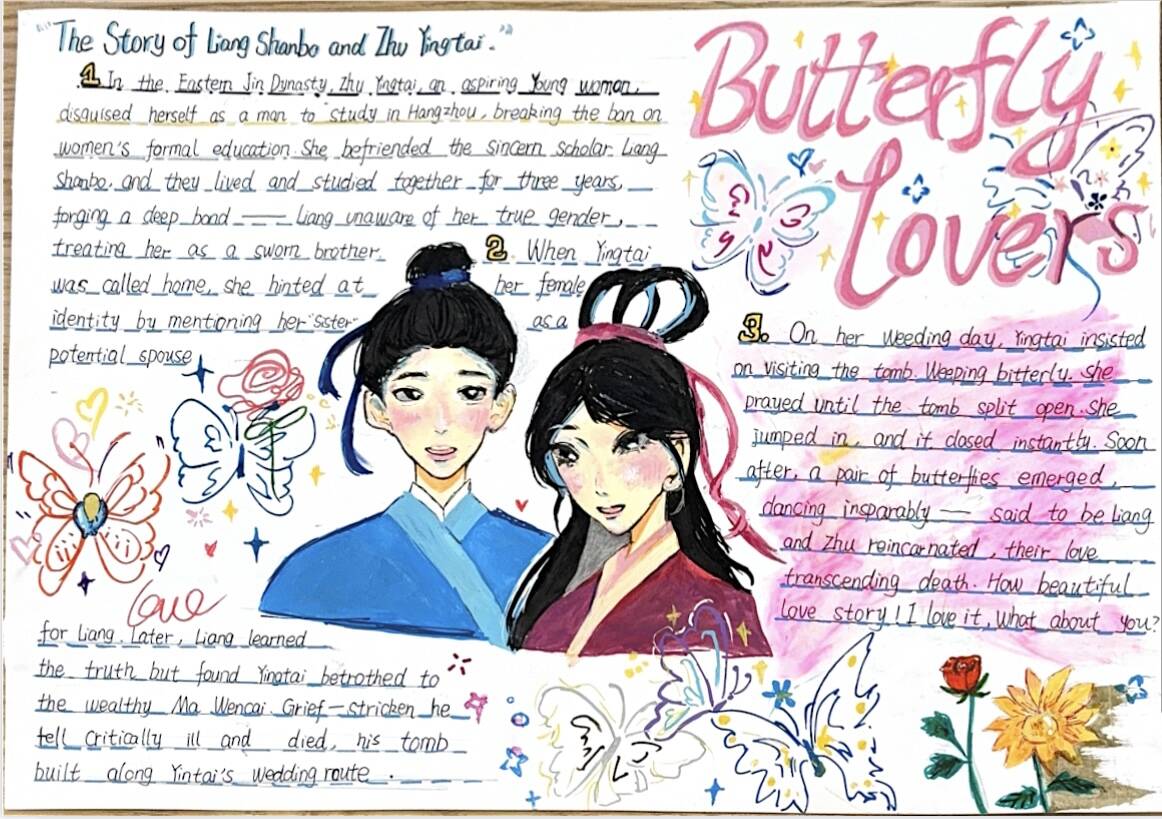 "The Story of Liang Shanbo and Zhu Yingtai."
Butterfly
Lovers
1 In the Eastern Jin Dynasty, Zhu Yingtai, an aspiring Young woman,
disguised herself as a man to study in Hangzhou, breaking the ban on
women's formal education. She befriended the sincern scholar Liang
Shanbo, and they lived and studied together for three years,
forging a deep bond —— Liang unaware of her true gender,
treating her as a sworn brother.
2. When Yingtai
was called home, she hinted at her female
identity by mentioning her "sister" as a
potential spouse
for Liang. Later, Liang learned
the truth but found Yingtai betrothed to
the wealthy Ma Wencai. Grief-stricken he
fell critically ill and died, his tomb
built along Yintai's wedding route.
Love
3. On her weeding day, Yingtai insisted
on visiting the tomb. Weeping bitterly. she
prayed until the tomb split open. She
jumped in, and it closed instantly. Soon
after, a pair of butterflies emerged,
dancing insparably — said to be Liang
and Zhu reincarnated, their love
transcending death. How beautiful
Love story! I love it, What about you?